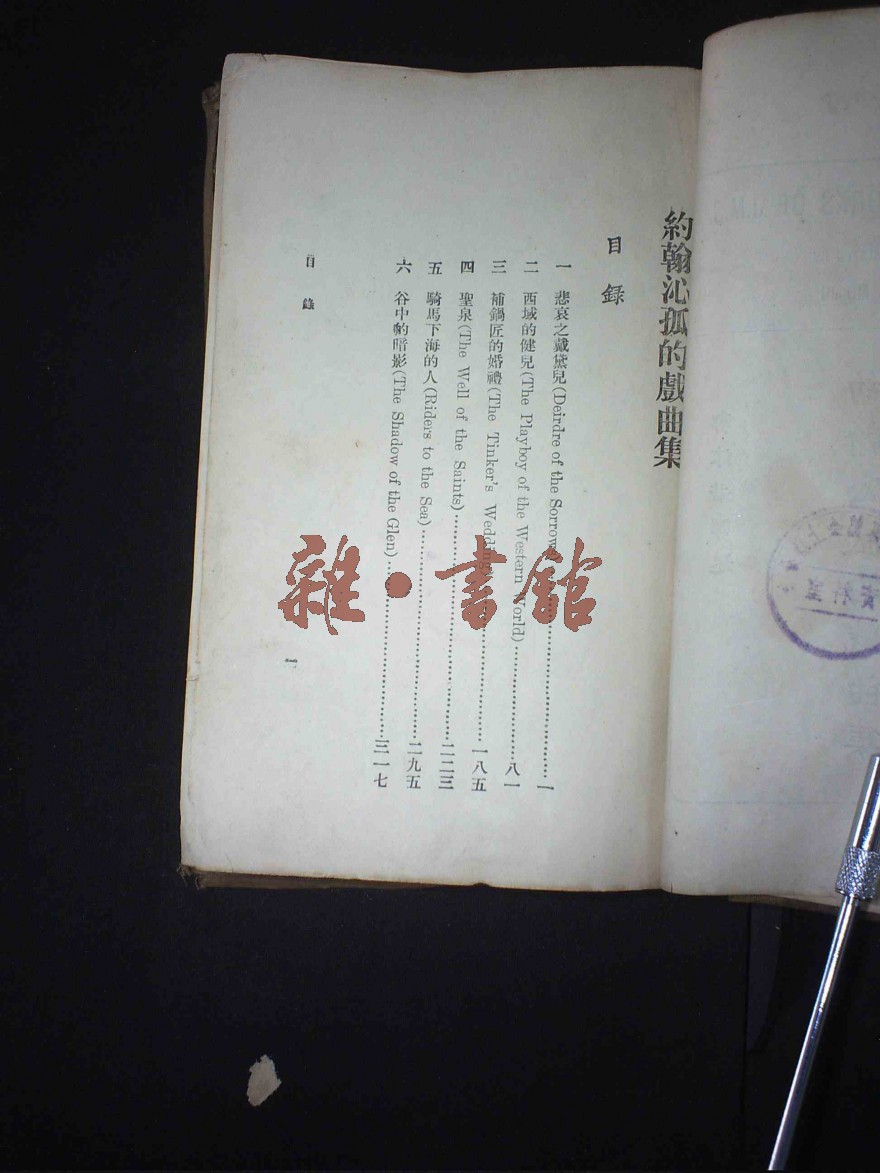 約翰沁孤的戲曲集
目錄
一 悲哀之戴黛兒(Deirdre of the Sorrows)……一
二 西域的健兒(The Playboy of the Western World)……八一
三 補鍋匠的婚禮(The Tinker's Wedding)……一八五
四 聖泉(The Well of the Saints)……二二三
五 騎馬下海的人(Riders to the Sea)……二九五
六 谷中的暗影(The Shadow of the Glen)……三一七
目錄
一
雜·書館
資料室